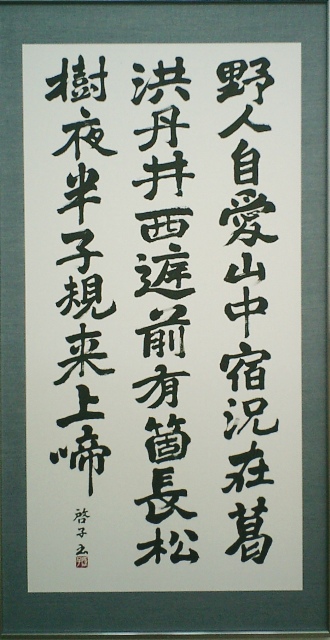 野人自愛山中宿況在葛
洪丹井西遅前有箇長松
樹夜半子規来上啼
啓子